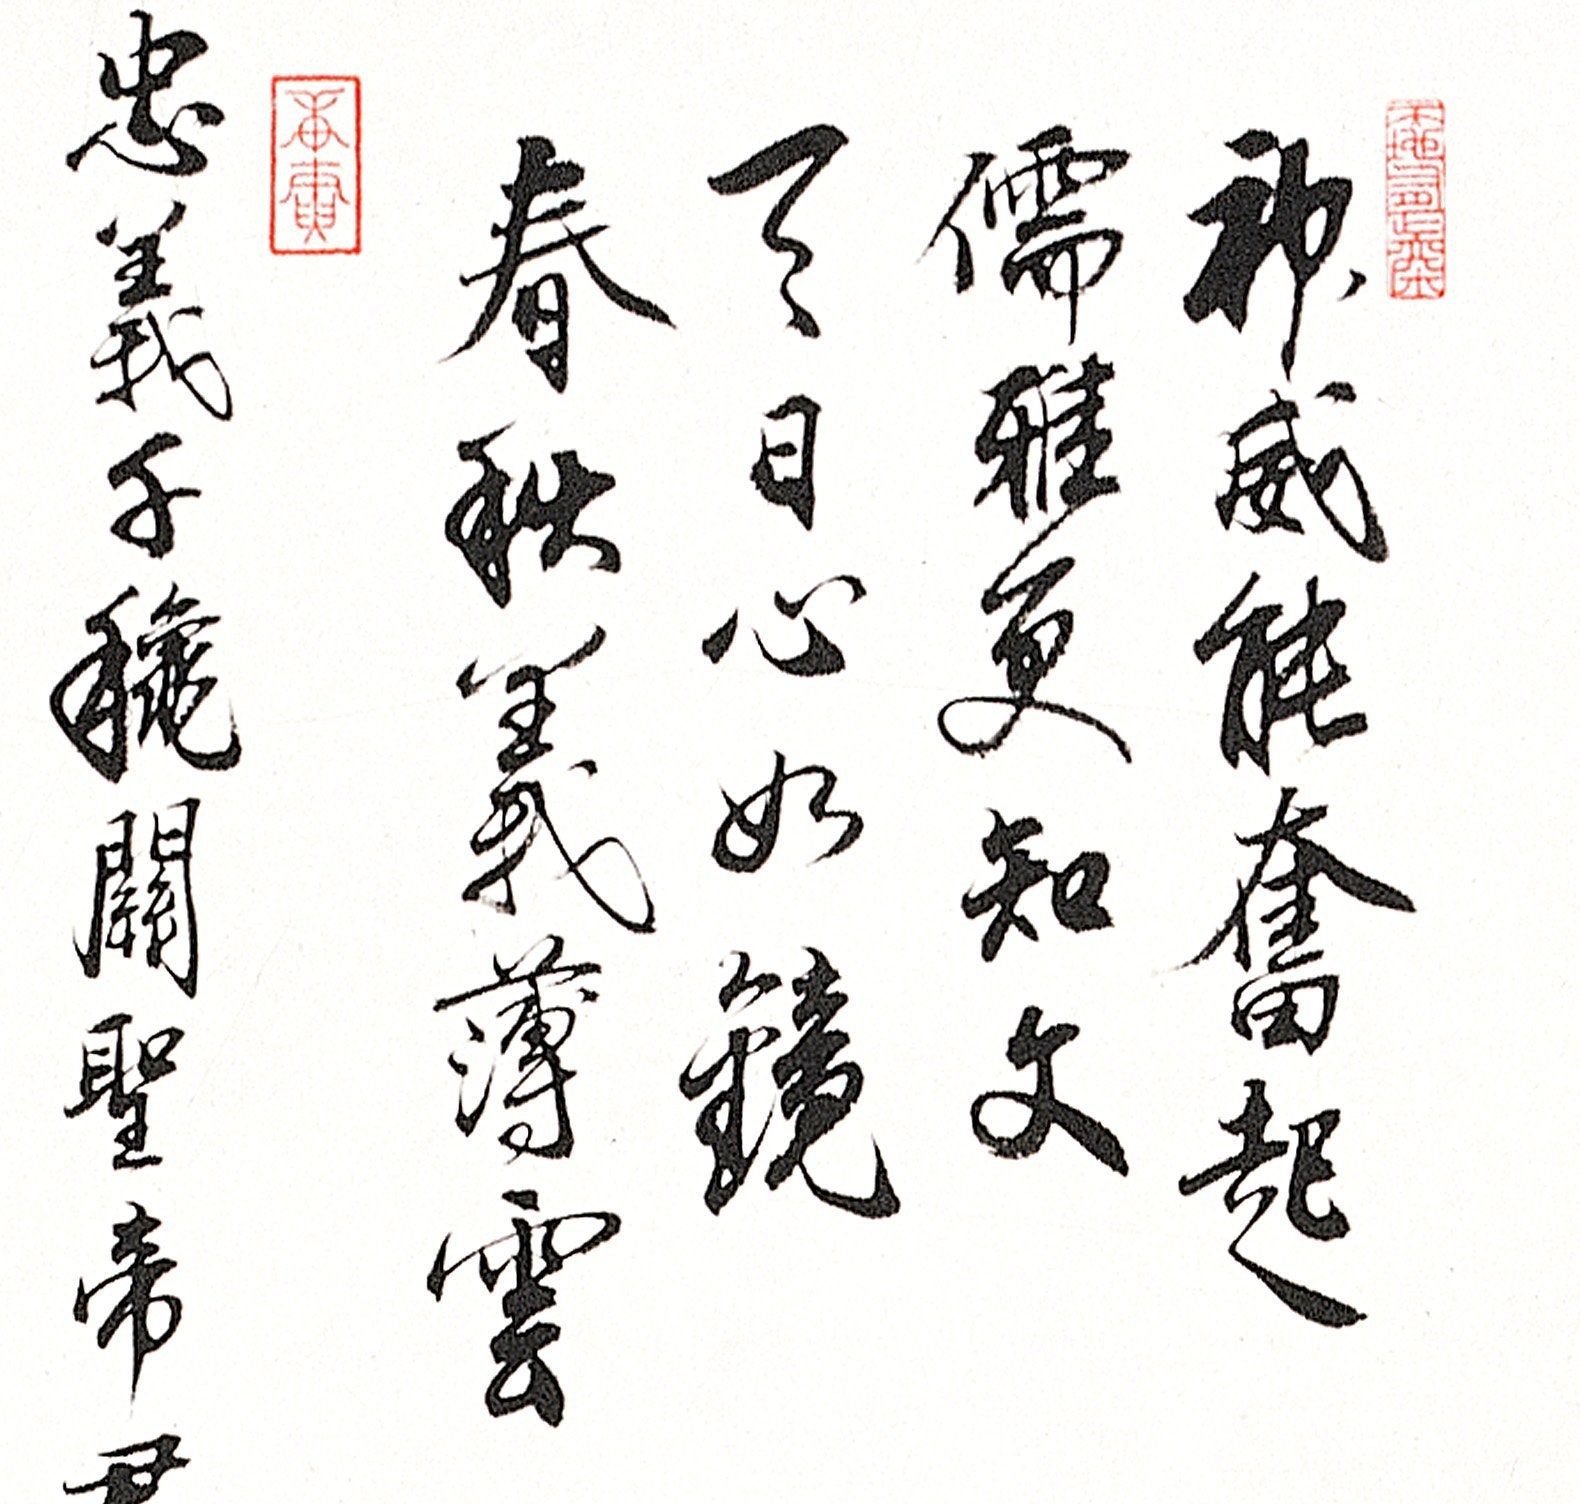 神威能奮起
儒雅更知文
天日心如鏡
春秋義薄雲
忠義千穐關聖帝君